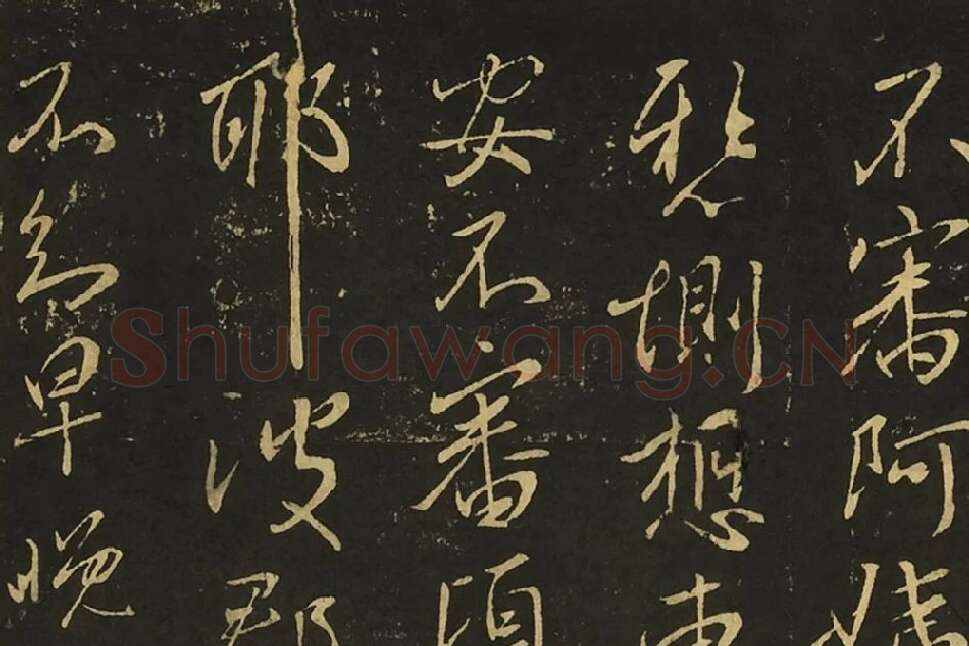 不審阿姨
惻想東
安不審頃
耶彼郡
不知早晚
Shufawang.CN